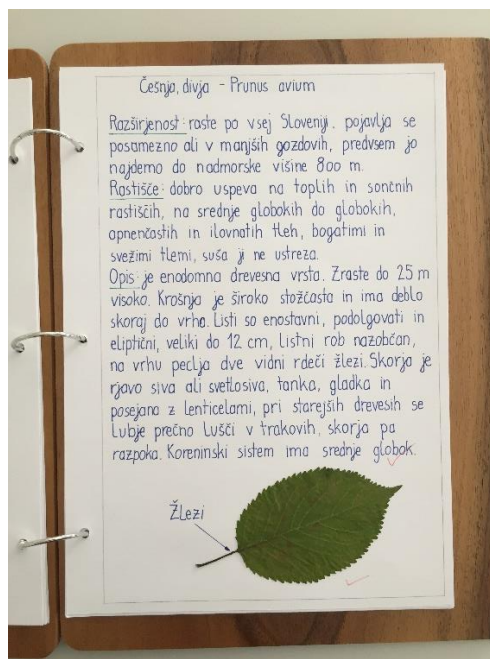 Češnja, divja - Prunus avium
Razširjenost: raste po vsej Sloveniji, pojavlja se
posamezno ali v manjših gozdovih, predvsem jo
najdemo do nadmorske višine 800 m.
Rastišče: dobro uspeva na toplih in sončnih
rastiščih, na srednje globokih do globokih,
apnenčastih in ilovnatih tleh, bogatimi in
svežimi tlemi, suša ji ne ustreza.
Opis: je enodomna drevesna vrsta. Zraste do 25 m
visoko. Krošnja je široko stožčasta in ima deblo
skoraj do vrha. Listi so enostavni, podolgovati in
eliptični, veliki do 12 cm, listni rob nazobčan,
na vrhu peclja dve vidni rdeči žlezi. Skorja je
rjavo siva ali svetlosiva, tanka, gladka in
posejana z lenticelami, pri starejših drevesih se
lubje prečno lušči v trakovih, skorja pa
razpoka. Koreninski sistem ima srednje globok.
Žlezi